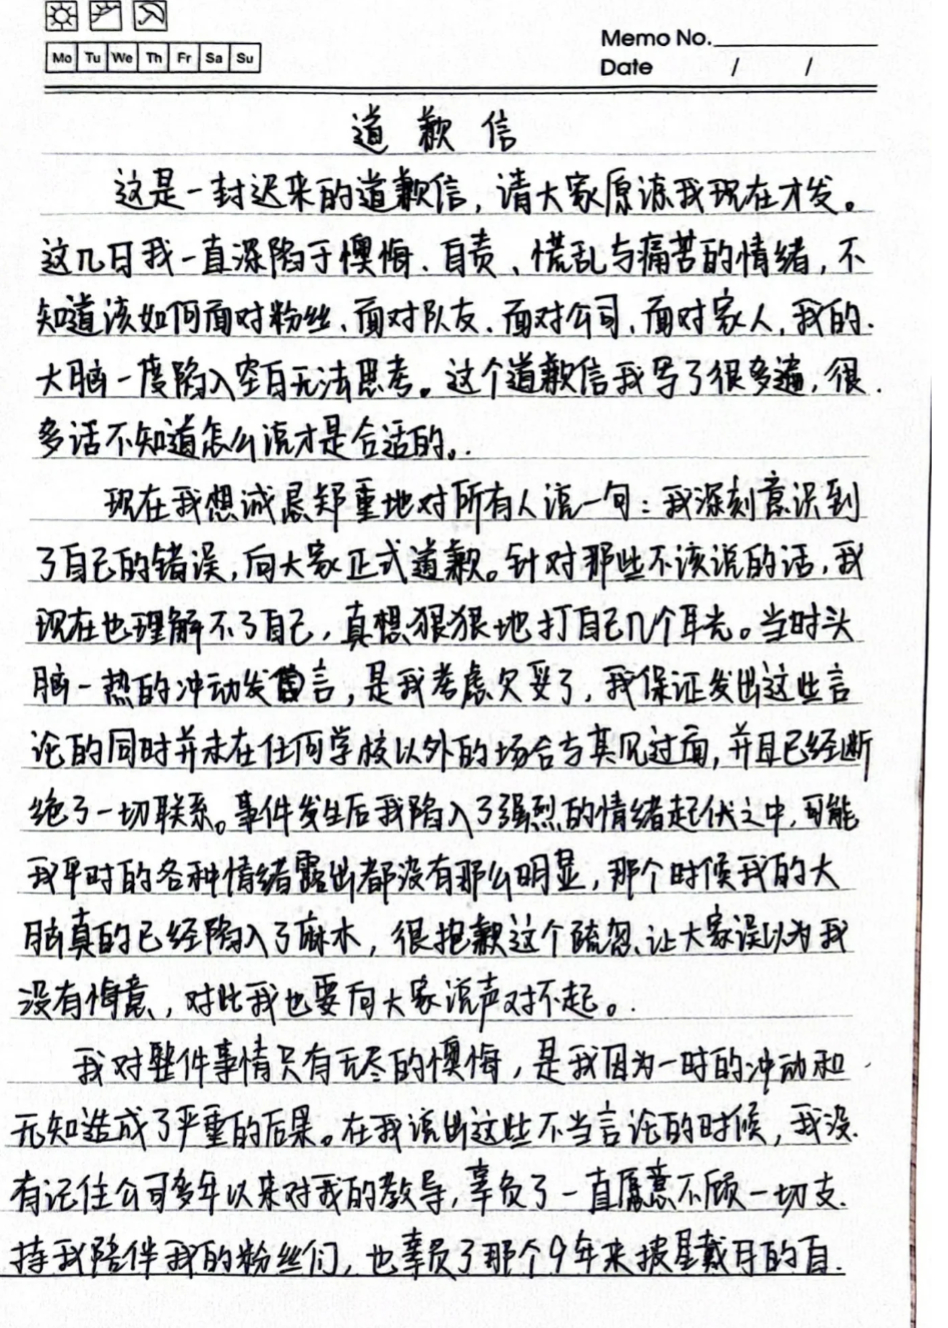 Mo Tu We Th Fr Sa Su
Memo No.
Date / /
道歉信
这是一封迟来的道歉信，请大家原谅我现在才发。
这几日我一直深陷于懊悔、自责、慌乱与痛苦的情绪，不
知道该如何面对粉丝、面对队友、面对公司、面对家人，我的
大脑一度陷入空白无法思考。这个道歉信我写了很多遍，很
多话不知道怎么说才是合适的。
现在我想诚恳郑重地对所有人说一句：我深刻意识到
了自己的错误，向大家正式道歉。针对那些不该说的话，我
现在也理解不了自己，真想狠狠地打自己几个耳光。当时头
脑一热的冲动发言，是我考虑欠妥了，我保证发出这些言
论的同时并未在任何学校以外的场合与其见过面，并且已经断
绝了一切联系。事件发生后我陷入了强烈的情绪起伏之中，可能
我平时的各种情绪露出都没有那么明显，那个时候我的大
脑真的已经陷入了麻木，很抱歉这个疏忽、让大家误以为我
没有悔意，对此我也要向大家说声对不起。
我对整件事情只有无尽的懊悔，是我因为一时的冲动和
无知造成了严重的后果。在我说出这些不当言论的时候，我没
有记住公司多年以来对我的教导，辜负了一直愿意不顾一切支
持我陪伴我的粉丝们，也辜负了那个9年来披星戴月的自